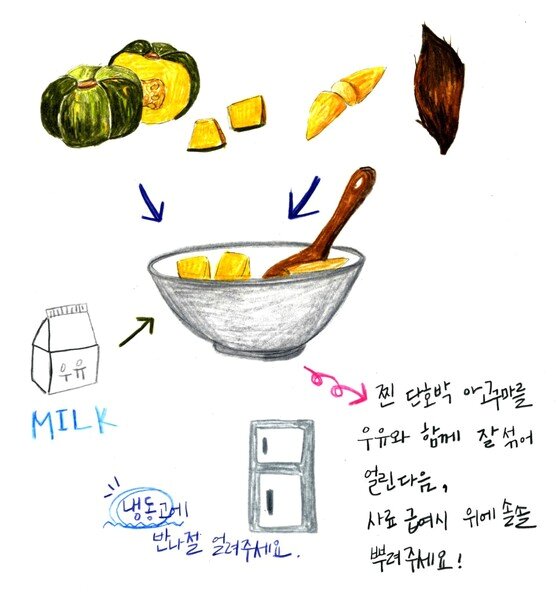 우유
MILK
찐 단호박 야구마를
우유와 함께 잘 섞어
얼린다음,
사료 급여시 위에 솔솔
뿌려주세요!
냉동고에
반나절 얼려주세요.